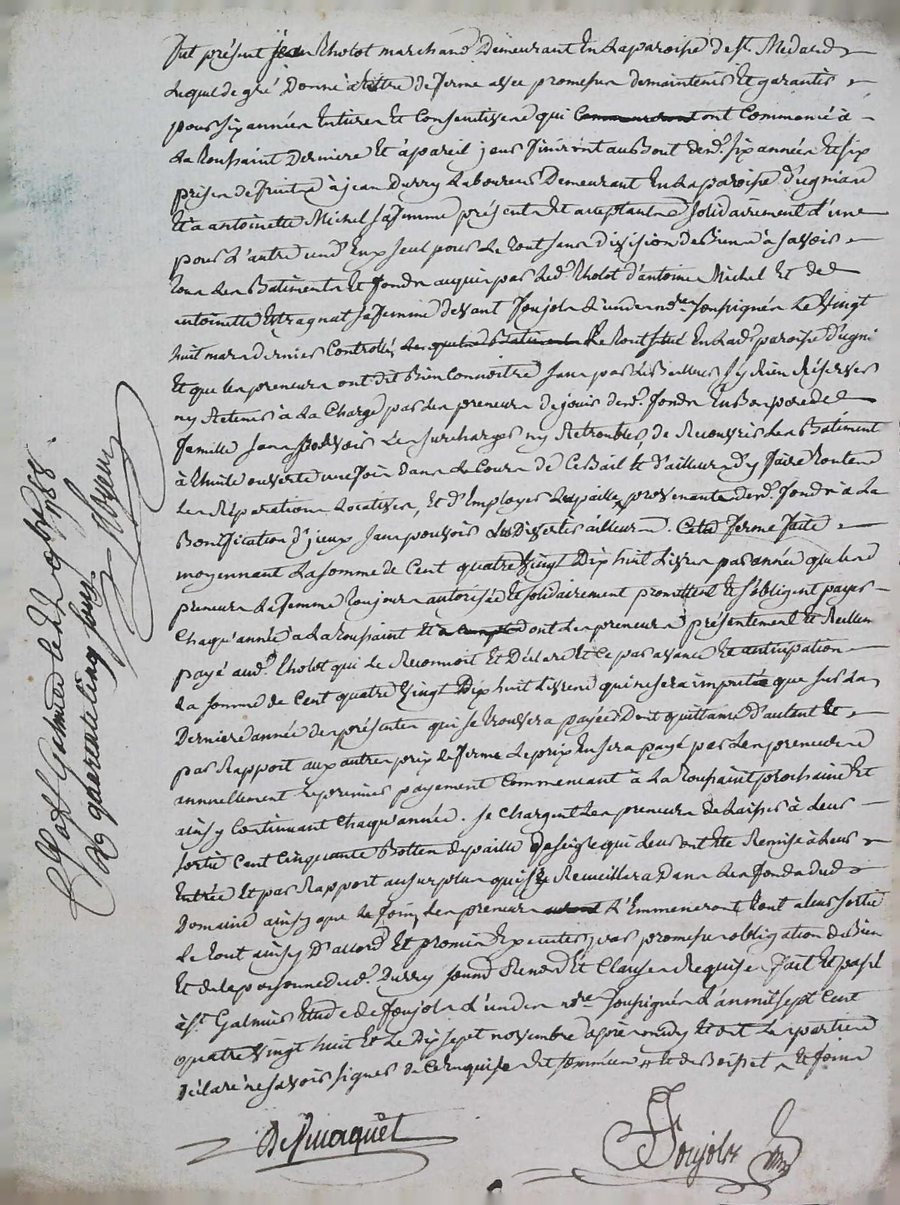 Fut présent jean Tholot marchand Demeurant En La paroisse de St. Medard
Lequel de gré Donne à tittre de ferme avec promesse de maintenir Et garantir
pour six années Entieres Et Consecutives qui ont Commencé à
La Toussaint Derniere Et à pareil jour finiront au Bout des d. six années Et six
prises de fruits à jean Durry Laboureur Demeurant En La paroisse d'
Et à antoinette Michel sa femme présents Et acceptants solidairement L'un
pour L'autre un d'Eux seul pour Le tout sans division de Biens à savoir
tous Les Batiments Et fonds acquis par Led. Tholot d'antoine Michel Et de
antoinette sa femme devant Poujols L'un des nres. soussignés Le Vingt
huit mars dernier Controllé, Le tout situé En Lad. paroisse d'
Et que les preneurs ont dit Bien Connoitre sans par Le Bailleur s'y Rien Réserver
ny Retenir à La Charge par Les preneurs de jouir desd. fonds En Bon pere de
famille sans pouvoir Les surcharger ny de Recouvrir Les Batiments
à Thuile ouverte une fois dans Le Cours de Ce Bail Et d'ailleurs d'y faire toutes
Les Réparations Locatives, Et d'Employer Les pailles provenantes desd. fonds à La
Bonification d'jceux sans pouvoir Les Divertir ailleurs. Cette ferme faite
moyennant La somme de Cent quatre Vingt Dix huit Livres par année que les
preneurs La femme toujours autorisée Et solidairement promettent Et s'obligent payer
Chaqu'année a La toussaint dont Les preneurs présentement Et Réellement
payé aud. Tholot qui Le Reconnoit Et Déclare Et Ce par avance Et anticipation
La somme de Cent quatre Vingt Dix huit Livres qui ne sera imputée que sur La
Derniere année des présentes qui se trouvera payée Dont quittance d'autant Et
par Rapport aux autres prix de ferme Le prix En sera payé par Les preneurs
annuellement Le premier payement Commencant à La Toussaint prochaine Et
ainsy Continuant Chaqu'année. se Chargent Les preneurs de Laisser à Leur
sortie Cent Cinquante Bottes de paille de seigle qui Leur ont été Remise à Leur
Entrée Et par Rapport au surplus qui se Recueillera Dans Les fonds dud.
Domaine ainsy que Le foin, Les preneurs L'Emmeneront tout a Leur sortie
Le tout ainsy D'accord Et promis Executer, par promesse obligation de Biens
Et de la personne dud. Durry Renon. Et Clauses Requises fait Et passé
à St. Galmier Etude de Poujols L'un des nres. soussignés L'an mil sept Cent
quatre Vingt huit Et Le Dix sept novembre après midy Et ont Les parties
Déclaré ne savoir signer de Ce Enquises Et sommées
Poujols
Cté à St Galmier le 9bre 1788
Rç quarante cinq sous